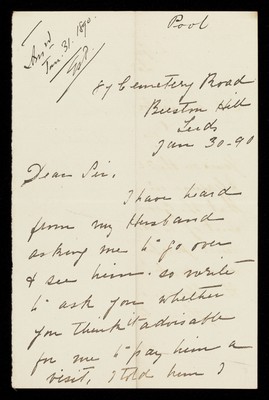 Pool
Ansd
Jan. 31. 1890.
84 Cemetery Road
Beeston Hill
Leeds
Jan 30-90
Dear Sir,
I have heard
from my Husband
asking me to go over
& see him. so write
to ask you whether
you think it advisable
for me to pay him a
visit, I told him I